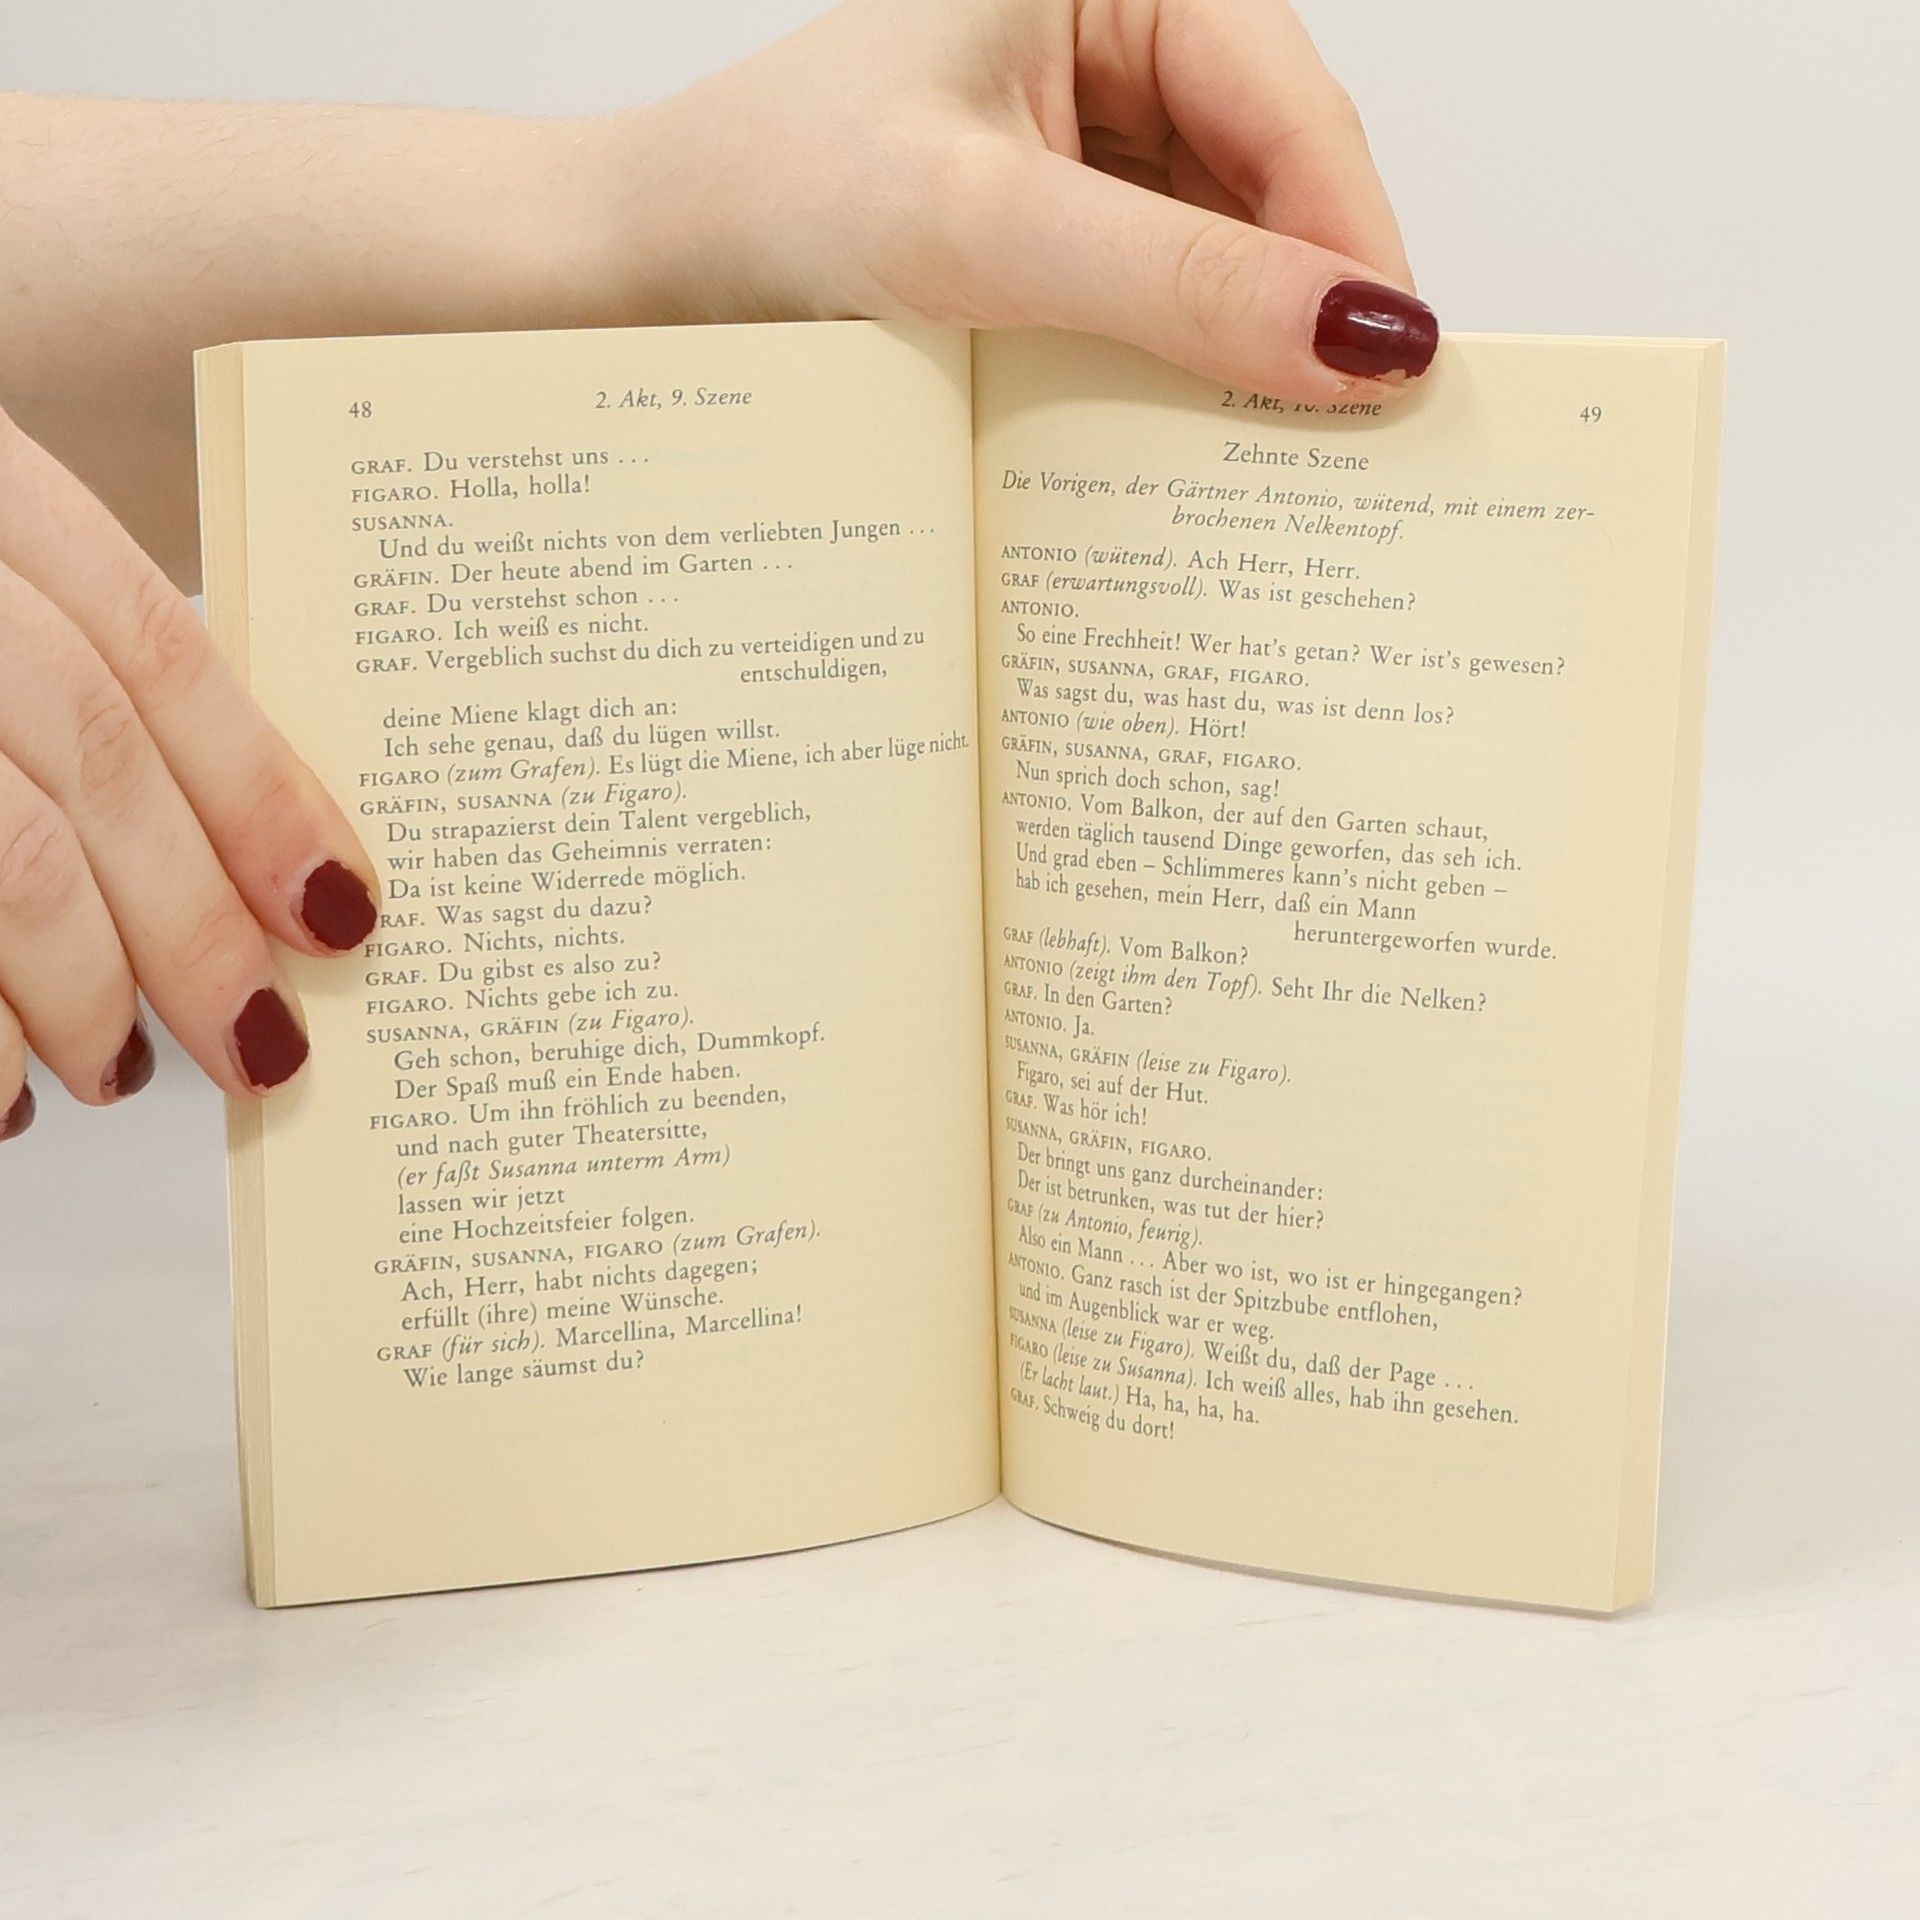 48
2. Akt, 9. Szene
GRAF. Du verstehst uns . . .
FIGARO. Holla, holla!
SUSANNA.
Und du weißt nichts von dem verliebten Jungen . . .
GRÄFIN. Der heute abend im Garten . . .
GRAF. Du verstehst schon . . .
FIGARO. Ich weiß es nicht.
GRAF. Vergeblich suchst du dich zu verteidigen und zu
entschuldigen,
deine Miene klagt dich an:
Ich sehe genau, daß du lügen willst.
FIGARO (zum Grafen). Es lügt die Miene, ich aber lüge nicht.
GRÄFIN, SUSANNA (zu Figaro).
Du strapazierst dein Talent vergeblich,
wir haben das Geheimnis verraten:
Da ist keine Widerrede möglich.
RAF. Was sagst du dazu?
FIGARO. Nichts, nichts.
GRAF. Du gibst es also zu?
FIGARO. Nichts gebe ich zu.
SUSANNA, GRÄFIN (zu Figaro).
Geh schon, beruhige dich, Dummkopf.
Der Spaß muß ein Ende haben.
FIGARO. Um ihn fröhlich zu beenden,
und nach guter Theatersitte,
(er faßt Susanna unterm Arm)
lassen wir jetzt
eine Hochzeitsfeier folgen.
GRÄFIN, SUSANNA, FIGARO (zum Grafen).
Ach, Herr, habt nichts dagegen;
erfüllt (ihre) meine Wünsche.
GRAF (für sich). Marcellina, Marcellina!
Wie lange säumst du?
2. Akt, 10. Szene
49
Zehnte Szene
Die Vorigen, der Gärtner Antonio, wütend, mit einem zer-
brochenen Nelkentopf.
ANTONIO (wütend). Ach Herr, Herr.
GRAF (erwartungsvoll). Was ist geschehen?
ANTONIO.
So eine Frechheit! Wer hat's getan? Wer ist's gewesen?
GRÄFIN, SUSANNA, GRAF, FIGARO.
Was sagst du, was hast du, was ist denn los?
ANTONIO (wie oben). Hört!
GRÄFIN, SUSANNA, GRAF, FIGARO.
Nun sprich doch schon, sag!
ANTONIO. Vom Balkon, der auf den Garten schaut,
werden täglich tausend Dinge geworfen, das seh ich.
Und grad eben – Schlimmeres kann's nicht geben –
hab ich gesehen, mein Herr, daß ein Mann
heruntergeworfen wurde.
GRAF (lebhaft). Vom Balkon?
ANTONIO (zeigt ihm den Topf). Seht Ihr die Nelken?
GRAF. In den Garten?
ANTONIO. Ja.
SUSANNA, GRÄFIN (leise zu Figaro).
Figaro, sei auf der Hut.
GRAF. Was hör ich!
SUSANNA, GRÄFIN, FIGARO.
Der bringt uns ganz durcheinander:
Der ist betrunken, was tut der hier?
GRAF (zu Antonio, feurig).
Also ein Mann . . . Aber wo ist, wo ist er hingegangen?
ANTONIO. Ganz rasch ist der Spitzbube entflohen,
und im Augenblick war er weg.
SUSANNA (leise zu Figaro). Weißt du, daß der Page . . .
FIGARO (leise zu Susanna). Ich weiß alles, hab ihn gesehen.
(Er lacht laut.) Ha, ha, ha, ha.
GRAF. Schweig du dort!